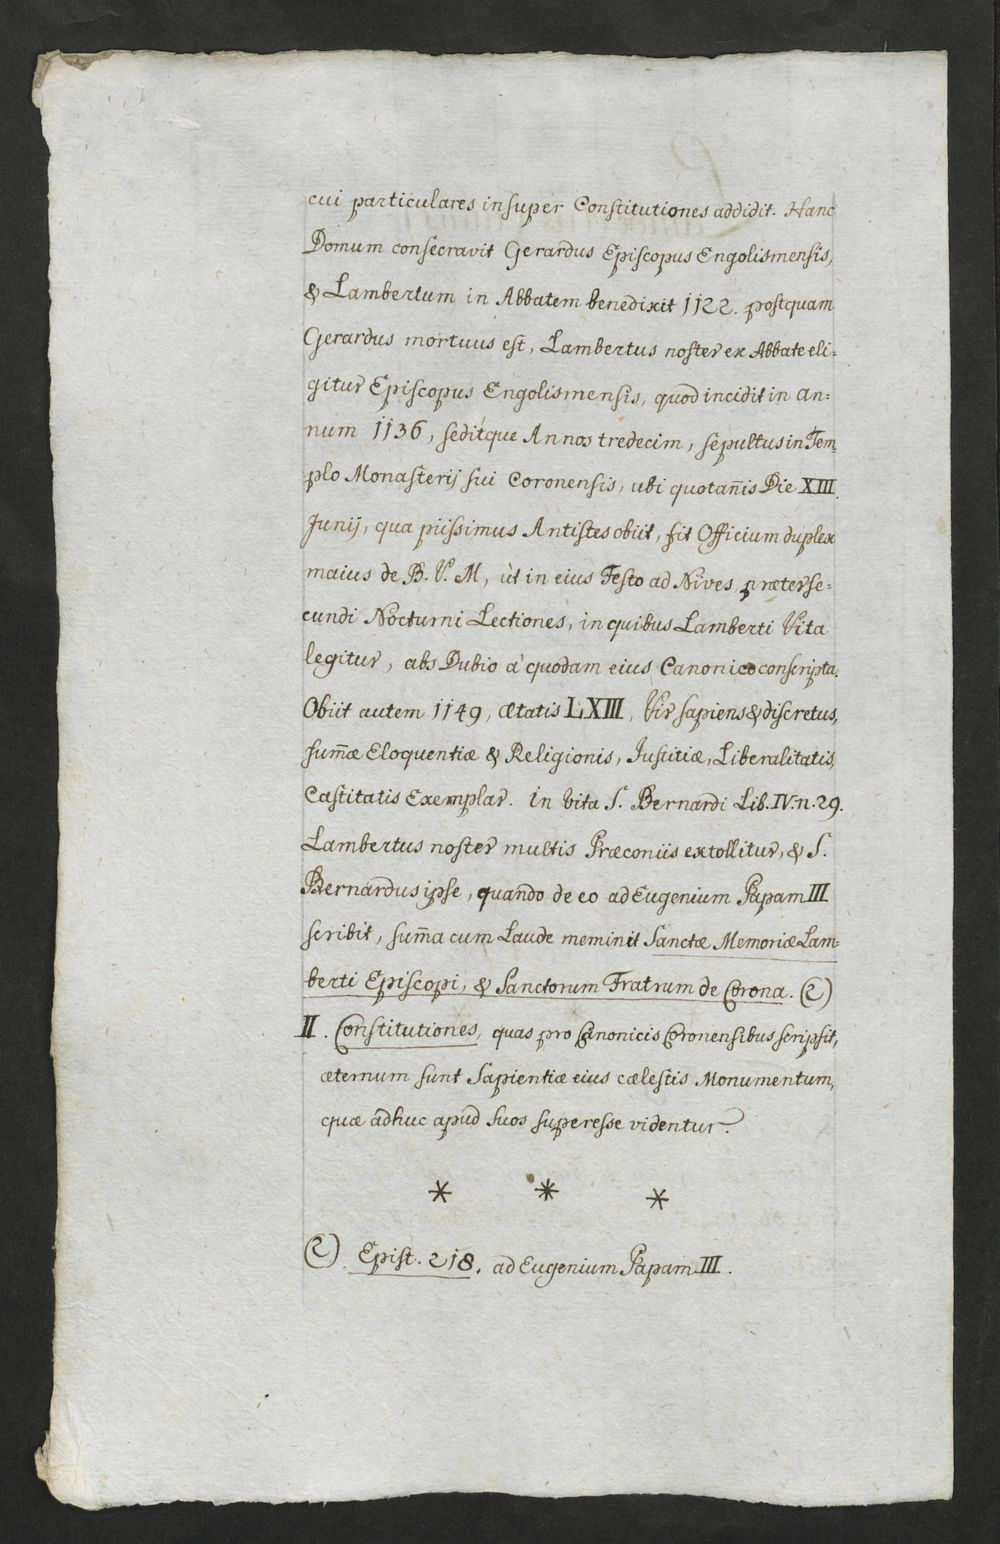 cui particulares insuper Constitutiones addidit. Hanc
Domum consecravit Gerardus Episcopus Engolismensis,
& Lambertum in Abbatem benedixit 1122. postquam
Gerardus mortuus est, Lambertus noster ex Abbate eli=
gitur Episcopus Engolismensis, quod incidit in an=
num 1136, seditque Annos tredecim, sepultus in Tem
plo Monasterij sui Coronensis, ubi quotañis Die XIII.
Junij, qua piissimus Antistes obiit, fit Officium duplex
maius de B. V. M, ùt in eius Festo ad Nives præter se=
cundi Nocturni Lectiones, in quibus Lamberti Vita
legitur, abs Dubio à quodam eius Canonico conscripta.
Obiit autem 1149, ætatis LXIII, Vir sapiens & discretus,
sum̃æ Eloquentiæ & Religionis, Justitiæ, Liberalitatis,
Castitatis Exemplar. in Vita S. Bernardi Lib. IV. n. 29.
Lambertus noster multis Præconiis extollitur, & S.
Bernardus ipse, quando de eo ad Eugenium Papam III
scribit, sum̃a cum Laude meminit Sanctæ Memoriæ Lam=
berti Episcopi, & Sanctorum Fratrum de Corona. (2)
II. Constitutiones, quas pro Canonicis Coronensibus scripsit,
æternum sunt Sapientiæ eius cælestis Monumentum,
quæ adhuc apud suos superesse videntur.
* * *
(2) Epist. 218. ad Eugenium Papam III.